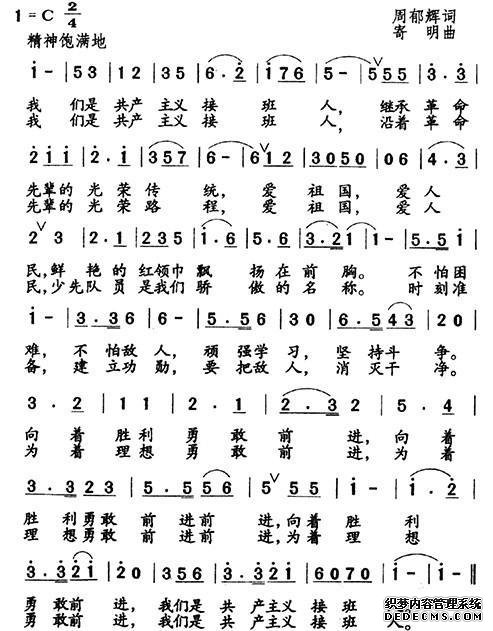 1=C 2/4
周郁辉词
精神饱满地
寄 明曲
i - | 5 3 1 2 | 3 5 | 6· 2 | i 7 6 | 5 - | 5 5 5 | 3· 3 |
我 们是 共产 主义 接 班 人, 继承 革命
我 们是 共产 主义 接 班 人, 沿着 革命
2 i i | 2· 1 | 3 5 7 | 6 - | 6 1 2 | 3 0 5 0 | 0 6 | 4· 3 |
先辈的 光 荣 传 统, 爱 祖 国, 爱 人
先辈的 光 荣 路 程, 爱 祖 国, 爱 人
2 3 | 2· 1 | 2 3 5 | i· 6 | 5· 6 | 3· 2 1 | 1 - | 5· 5 i |
民,鲜 艳 的 红领巾 飘 扬 在 前 胸。 不 怕 困
民,少先 队 员 是我们 骄 傲 的 名 称。 时 刻 准
i - | 3· 3 6 | 6 - | 5· 5 6 | 3 0 | 6· 5 4 3 | 2 0 |
难, 不 怕敌 人, 顽 强学 习, 坚 持斗 争。
备, 建 立功 勋, 要 把敌 人, 消 灭干 净。
3· 2 | 1 1 | 2· 1 | 2 - | 2· 3 2 | 5· 4 |
向 着 胜利 勇 敢 前 进, 向 着
为 着 理想 勇 敢 前 进, 为 着
3· 3 2 3 | 5· 5 5 6 | 5 5 | 5· 5 | i - | i· 2 |
胜 利勇敢 前 进前 进,向 着 胜 利
理 想勇敢 前 进前 进,为 着 理 想
3· 3 2 i | i 2 0 | 3 5 6 | 3· 3 2 i | 6 0 7 0 | i - ‖
勇 敢前 进, 我们是 共 产主义 接 班 人。
勇 敢前 进, 我们是 共 产主义 接 班
织梦内容管理系统
DEDECMS.COM